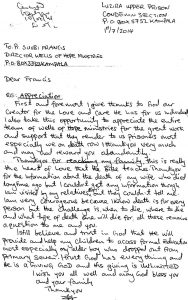 LUZIRA UPPER PRISON
CONDEMN SECTION
P.O BOX 5732 KAMPALA
1st/7/2014
TO P. SUBI FRANCIS
DIRECTOR WELLS OF HOPE MINISTRIES
P.O BOX KAMPALA
Dear Francis
RE: Appreciation
First and foremost I give thanks to God our
Creator for the Love and care He has for us indeed
I also take this opportunity to appreciate the entire
team of wells of Hope ministries for the great work
and support that they render to us prisoners most
especially we on death row. I thank you very much
and may God reward you abundantly.
Thank you for reaching my family, this is really
the heart of Love that the Bible teaches. Thank you
for the information about the death of my wife who died
long time ago but I couldn't get any information though
am visited by my relatives but they couldn't tell me.
Iam very courageous because when death is for every
person but the challenge is when to die, where to die
and what type of death one will die for, all these remains
a question to me and you.
I still believe and trust in God that He will
provide and help my children to access formal Education
most especially my elder boy who dropped out from
primary seven. Trust God has every thing and he
He is a living GOD and His giving is unlimited
I wish you all well and may God bless you
and your family
Thank you